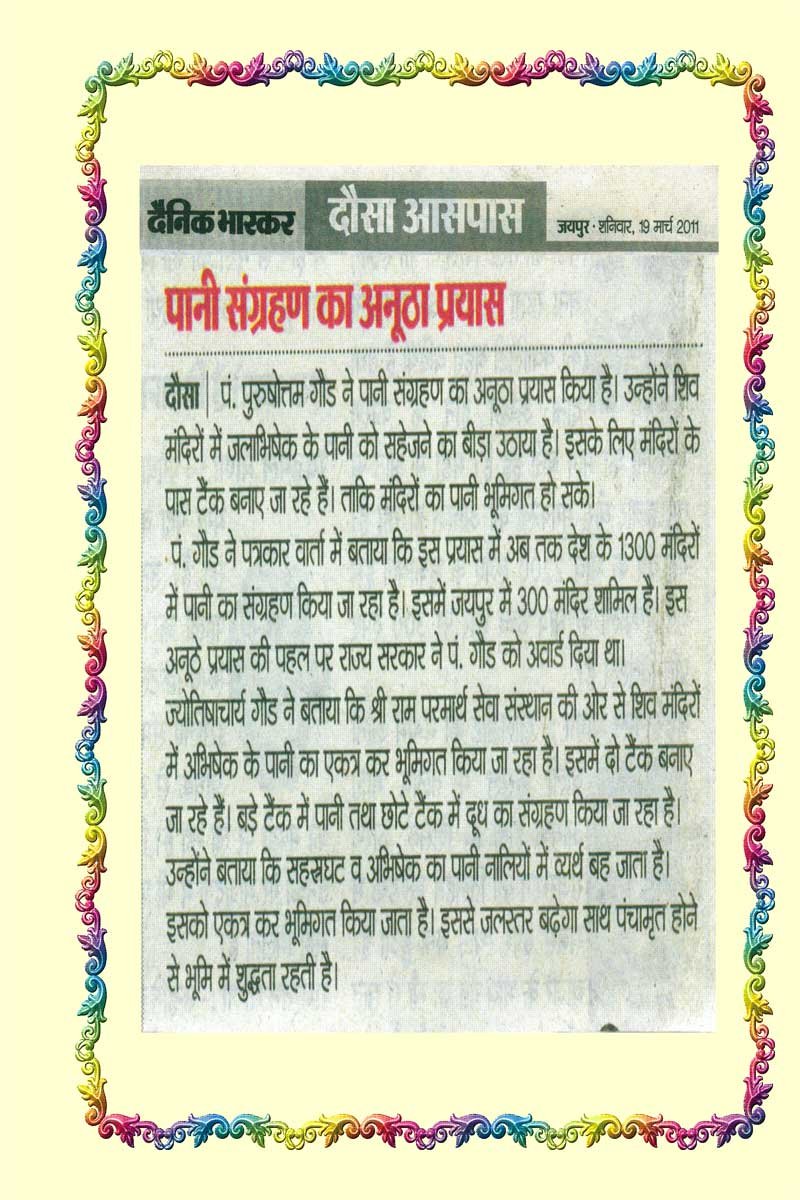 दैनिक भास्कर
दौसा आसपास
जयपुर • शनिवार, 19 मार्च 2011
पानी संग्रहण का अनूठा प्रयास
दौसा | पं. पुरुषोत्तम गौड ने पानी संग्रहण का अनूठा प्रयास किया है। उन्होंने शिव
मंदिरों में जलाभिषेक के पानी को सहेजने का बीड़ा उठाया है। इसके लिए मंदिरों के
पास टैंक बनाए जा रहे हैं। ताकि मंदिरों का पानी भूमिगत हो सके।
पं. गौड ने पत्रकार वार्ता में बताया कि इस प्रयास में अब तक देश के 1300 मंदिरों
में पानी का संग्रहण किया जा रहा है। इसमें जयपुर में 300 मंदिर शामिल है। इस
अनूठे प्रयास की पहल पर राज्य सरकार ने पं. गौड को अवार्ड दिया था।
ज्योतिषाचार्य गौड ने बताया कि श्री राम परमार्थ सेवा संस्थान की ओर से शिव मंदिरों
में अभिषेक के पानी का एकत्र कर भूमिगत किया जा रहा है। इसमें दो टैंक बनाए
जा रहे हैं। बड़े टैंक में पानी तथा छोटे टैंक में दूध का संग्रहण किया जा रहा है।
उन्होंने बताया कि सहस्रघट व अभिषेक का पानी नालियों में व्यर्थ बह जाता है।
इसको एकत्र कर भूमिगत किया जाता है। इससे जलस्तर बढ़ेगा साथ पंचामृत होने
से भूमि में शुद्धता रहती है।